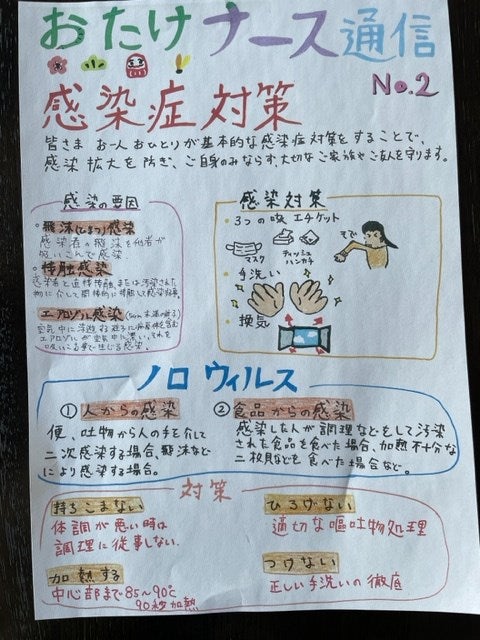 おたけナース通信
No.2
感染症対策
皆さま お一人おひとりが基本的な感染症対策をすることで、
感染拡大を防ぎ、ご自身のみならず、大切なご家族やご友人を守ります。
感染の要因
・飛沫(ひまつ)感染
感染者の飛沫を他者が
吸いこんで感染
・接触感染
感染者と直接接触、または汚染された
物に介して間接的に接触して感染
エアロゾル感染
空気中に浮遊する
エアロゾルが空気中に漂い、それを
吸いこむ事で生じる感染。
感染対策
・3つの咳エチケット
マスク
ティッシュ
ハンカチ
そで
・手洗い
・換気
ノロウィルス
① 人からの感染
便、吐物から人の手を介して
二次感染する場合、飛沫など
により感染する場合。
② 食品からの感染
感染した人が調理などをして汚染
された食品を食べた場合、加熱不十分な
二枚貝などを食べた場合など。
対策
持ちこまない
体調が悪い時は
調理に従事しない。
加熱する
中心部まで85~90℃
90秒加熱
ひろげない
適切な嘔吐物処理
つけない
正しい手洗いの徹底